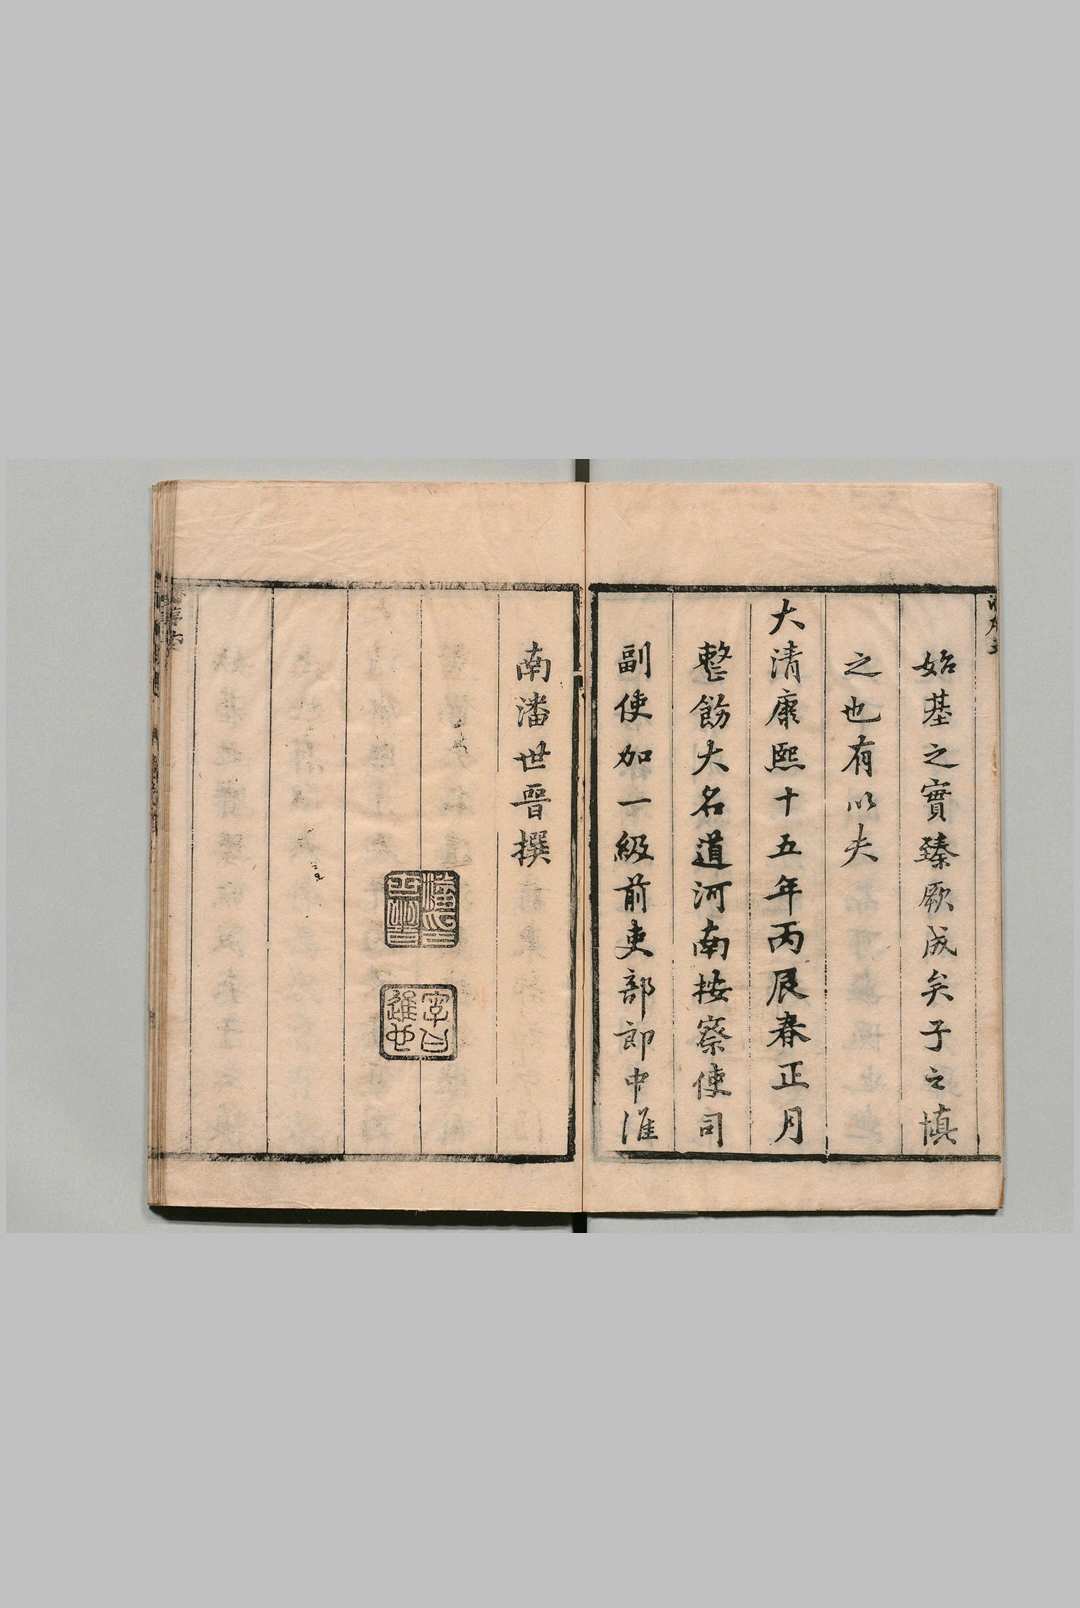 始基之實臻厥成矣子之慎
之也有以夫
大清康熙十五年丙辰春正月
整飭大名道河南按察使司
副使加一級前吏部郎中淮
南潘世晉撰
潘印世晉
字曰進也